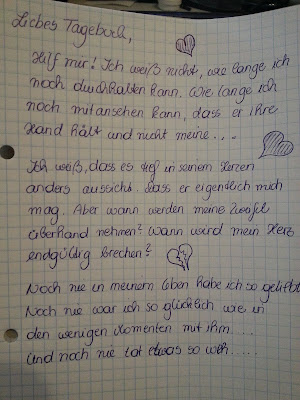 Liebes Tagebuch,
Hilf mir! Ich weiß nicht, wie lange ich
noch durchhalten kann. Wie lange ich
noch mitansehen kann, dass er ihre
Hand hält und nicht meine...
Ich weiß, dass es tief in seinem Herzen
anders aussieht. Dass er eigentlich mich
mag. Aber wann werden meine Zweifel
überhand nehmen? Wann wird mein Herz
endgültig brechen?
Noch nie in meinem Leben habe ich so geliebt.
Noch nie war ich so glücklich wie in
den wenigen Momenten mit ihm.....
Und noch nie tat etwas so weh.....